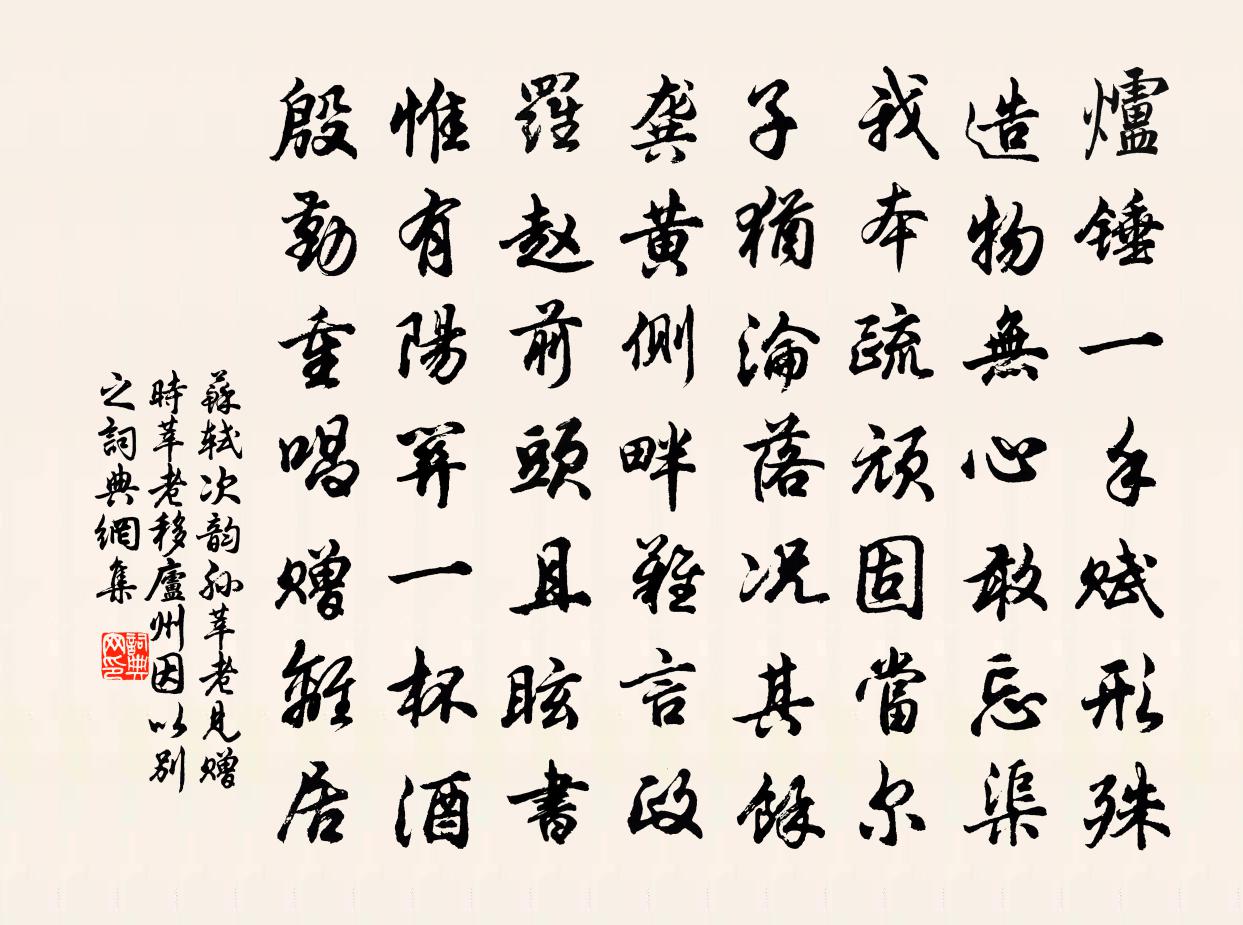 爐錘一手賦形殊
造物無心敢忘渠
我本疏頑固當尔
子猶淪落况其餘
龔黄側畔難言政
羅赵前頭且眩書
惟有陽關一杯酒
殷勤重唱贈離居
蘇軾次韵孫莘老見贈
時莘老移廬州因以别
之詞典網集
詞典网印